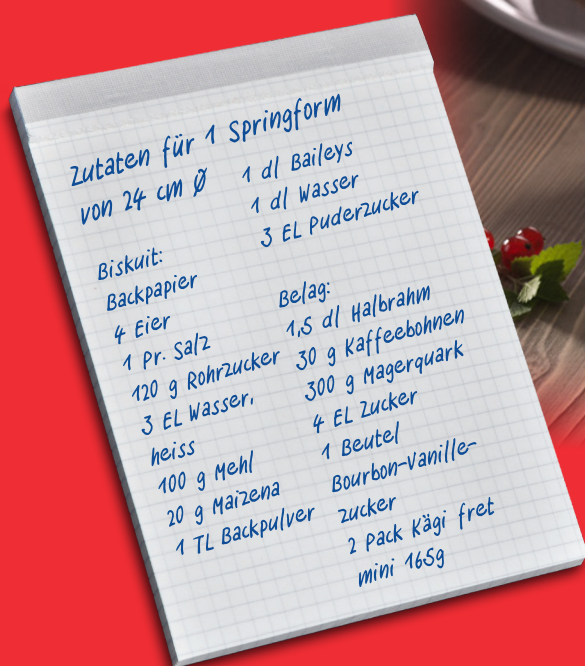 Zutaten für 1 Springform
von 24 cm Ø
Biskuit:
Backpapier
4 Eier
1 Pr. Salz
120 g Rohrzucker
3 EL Wasser,
heiss
100 g Mehl
20 g Maizena
1 TL Backpulver
1 dl Baileys
1 dl Wasser
3 EL Puderzucker
Belag:
1,5 dl Halbrahm
30 g Kaffeebohnen
300 g Magerquark
4 EL Zucker
1 Beutel
Bourbon-Vanille-
zucker
2 Pack Kägi fret
mini 165g